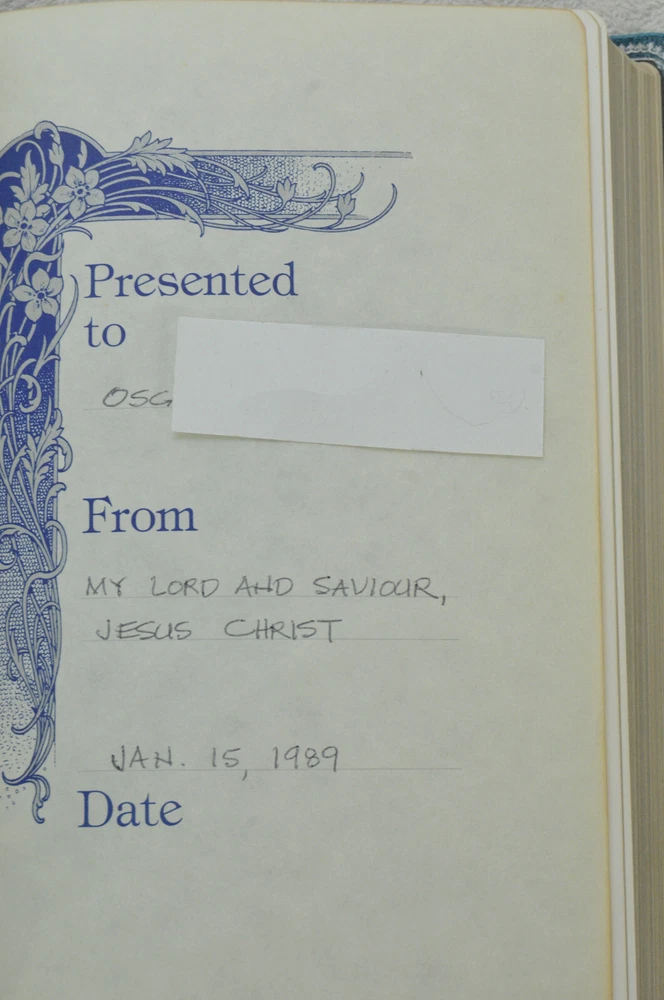 Presented
to
From
MY LORD AND SAVIOUR,
JESUS CHRIST
JAN. 15, 1989
Date